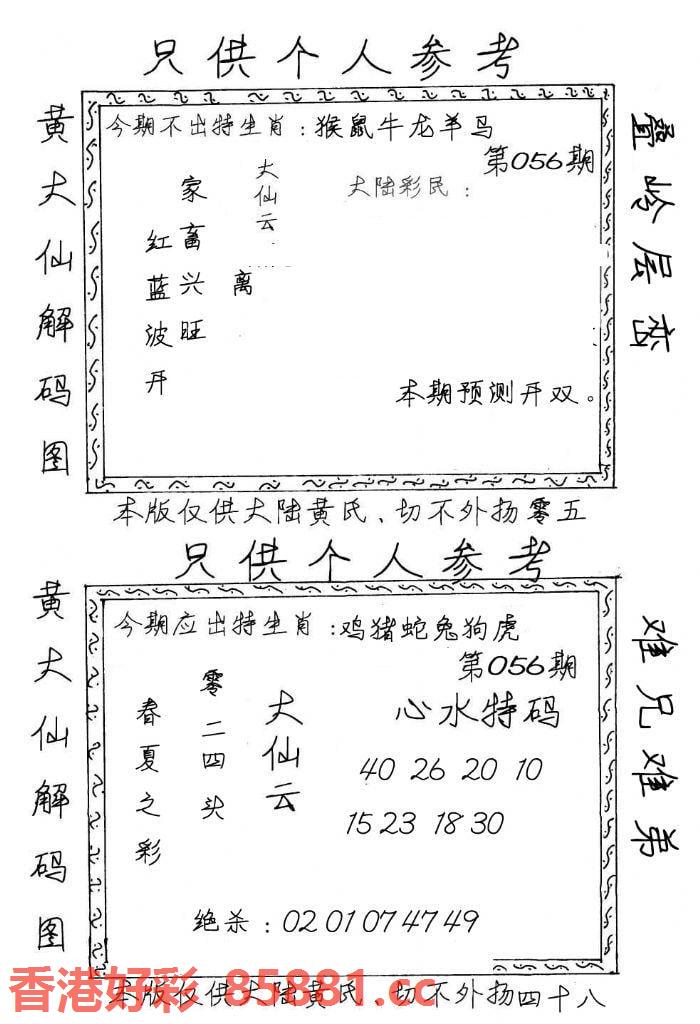 只供个人参考
黄大仙解码图
今期不出特生肖：猴鼠牛龙羊马
第056期
大仙云
大陆彩民：
家畜兴旺
红蓝波开
离
本期预测开双。
叠岭层峦
本版仅供大陆黄氏、切不外扬零五
只供个人参考
黄大仙解码图
今期应出特生肖：鸡猪蛇兔狗虎
第056期
大仙云
零二四头
春夏之彩
心水特码
40 26 20 10
15 23 18 30
绝杀：02 01 07 47 49
难兄难弟
香港好彩 85881.cc
本版仅供大陆黄氏、切不外扬四十八